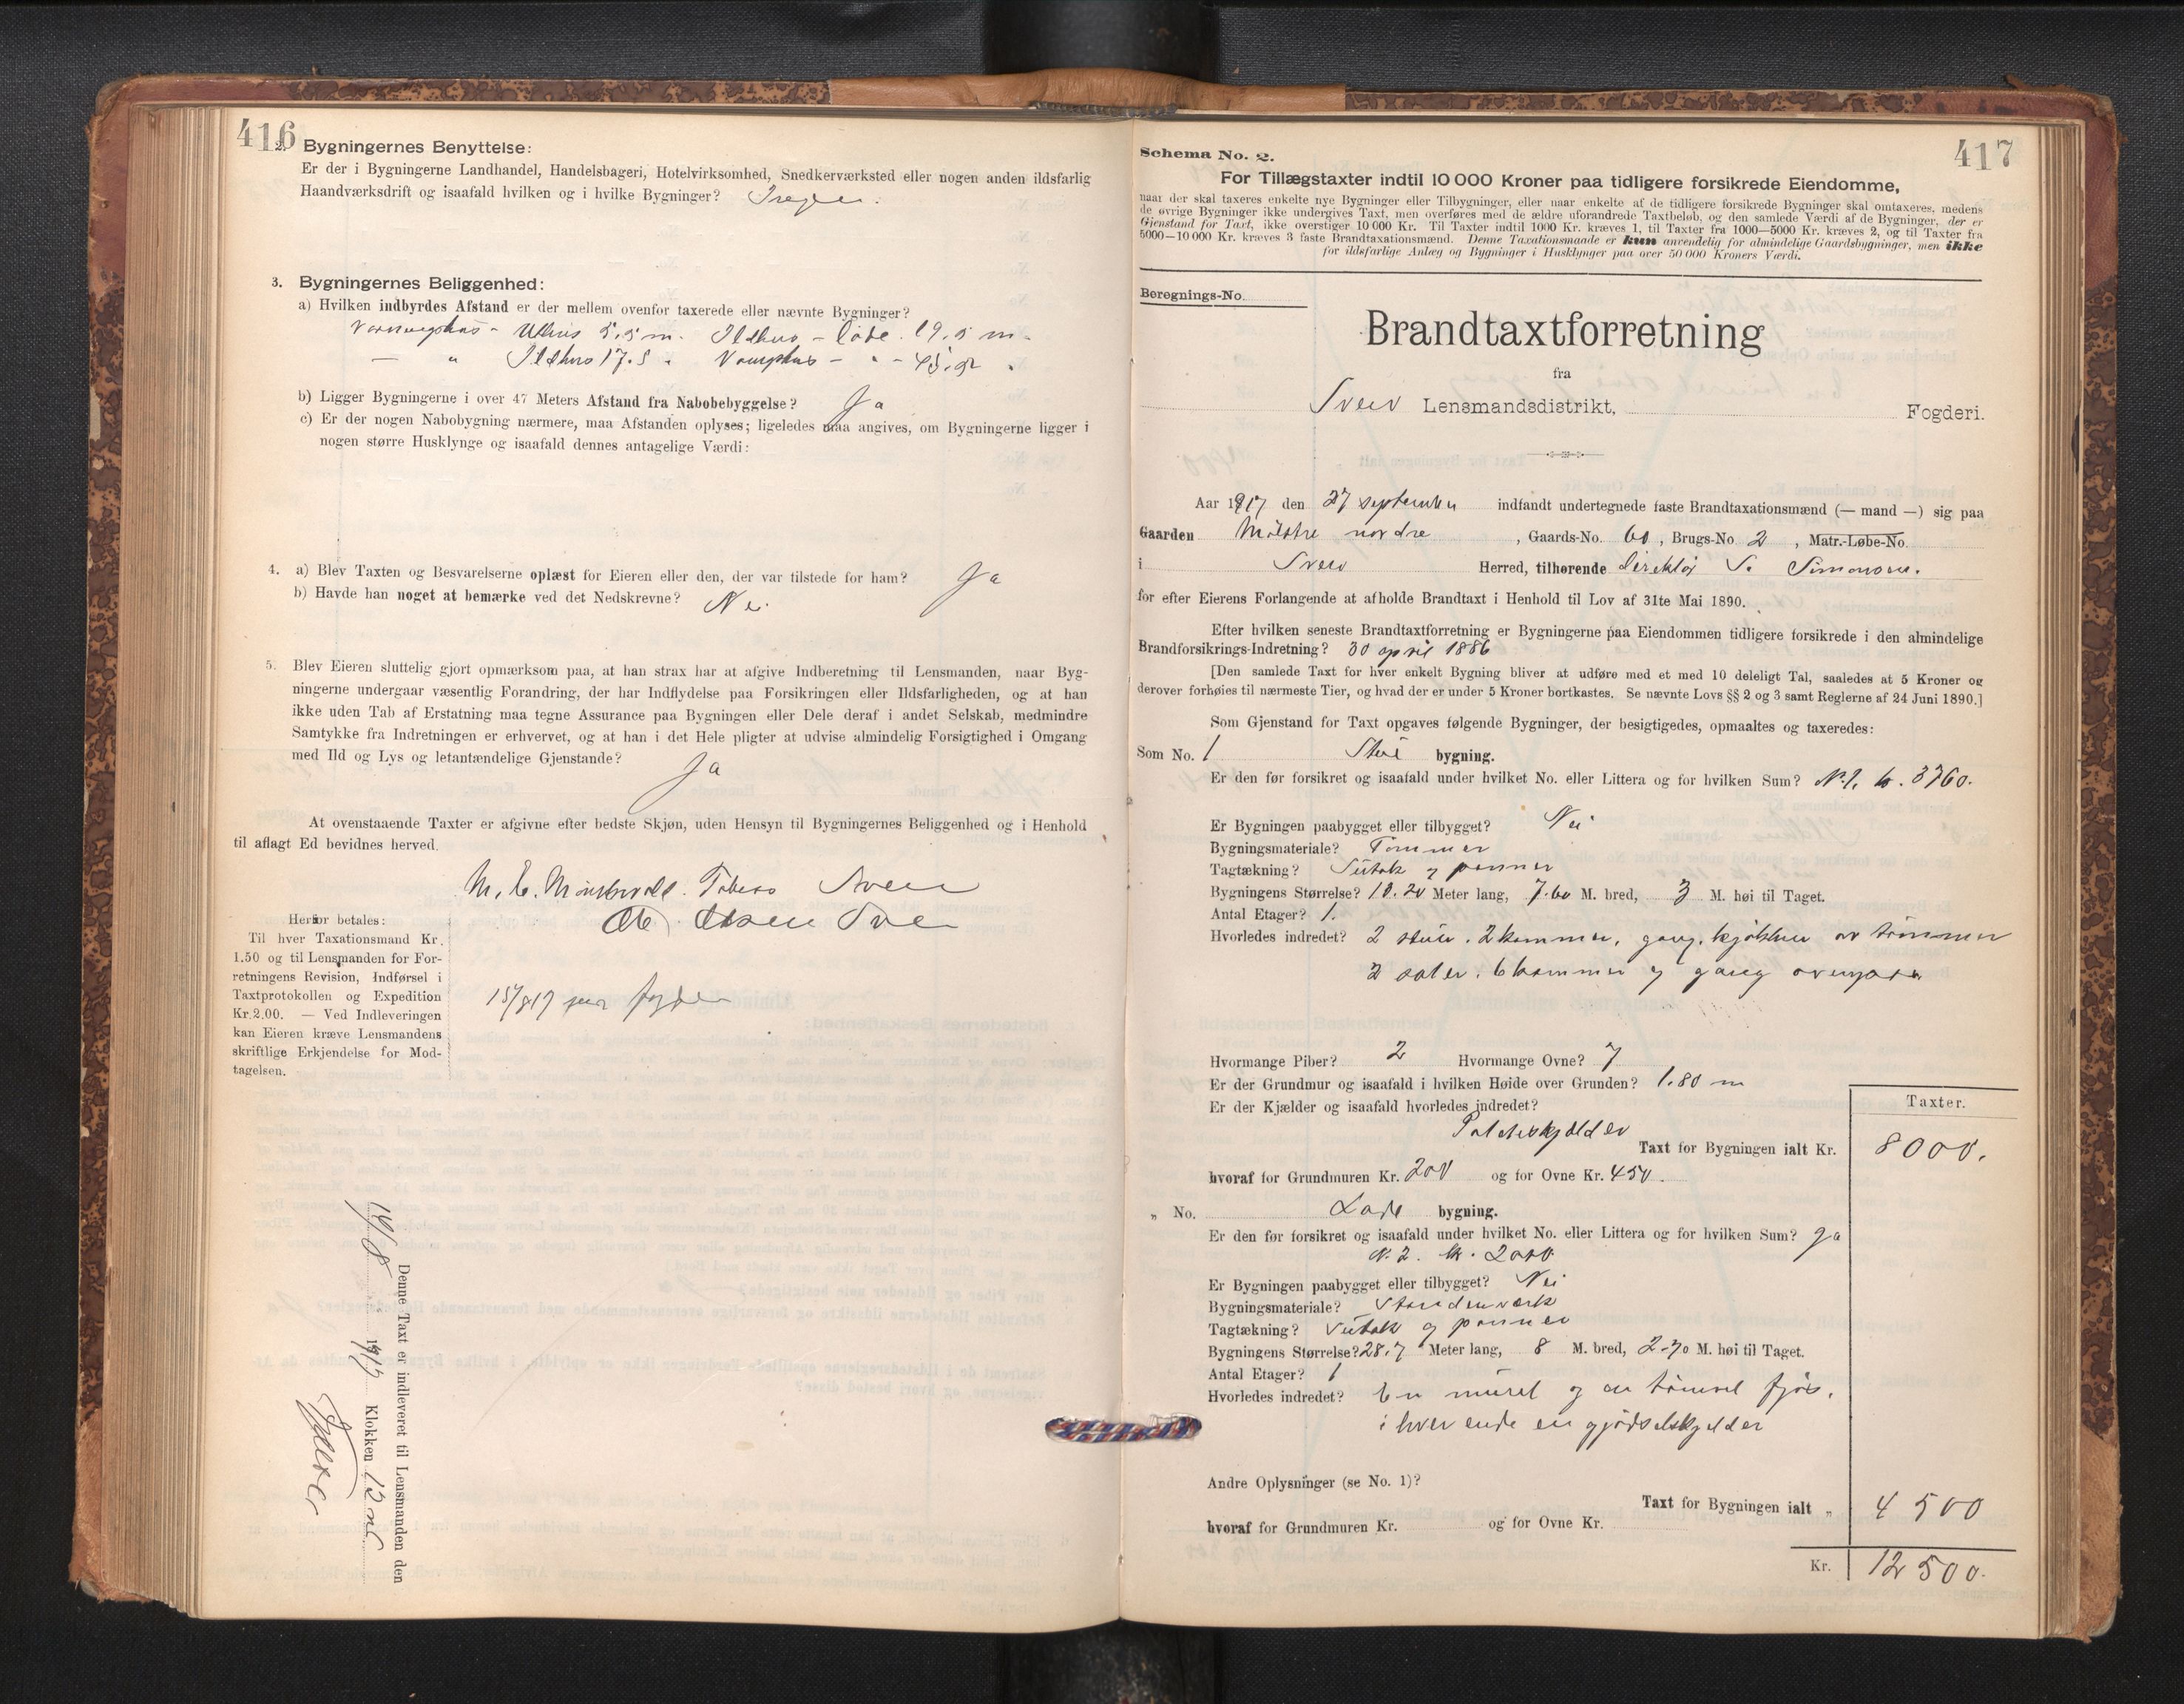 416
2. Bygningernes Benyttelse:
Er der i Bygningerne Landhandel, Handelsbageri, Hotelvirksomhed, Snedkerværksted eller nogen anden ildsfarlig
Haandværksdrift og isaafald hvilken og i hvilke Bygninger?
3. Bygningernes Beliggenhed:
a) Hvilken indbyrdes Afstand er der mellem ovenfor taxerede eller nævnte Bygninger?
Uthus 5,5 m. Ildhus – Løde 19,5 m.
— " Ildhus 17.5 "
b) Ligger Bygningerne i over 47 Meters Afstand fra Nabobebyggelse? Ja
c) Er der nogen Nabobygning nærmere, maa Afstanden oplyses; ligeledes maa angives, om Bygningerne ligger i
nogen større Husklynge og isaafald dennes antagelige Værdi:
4. a) Blev Taxten og Besvarelserne oplæst for Eieren eller den, der var tilstede for ham? Ja
b) Havde han noget at bemærke ved det Nedskrevne? Nei.
5. Blev Eieren sluttelig gjort opmærksom paa, at han strax har at afgive Indberetning til Lensmanden, naar Byg-
ningerne undergaar væsentlig Forandring, der har Indflydelse paa Forsikringen eller Ildsfarligheden, og at han
ikke uden Tab af Erstatning maa tegne Assurance paa Bygningen eller Dele deraf i andet Selskab, medmindre
Samtykke fra Indretningen er erhvervet, og at han i det Hele pligter at udvise almindelig Forsigtighed i Omgang
med Ild og Lys og letantændelige Gjenstande? Ja
At ovenstaaende Taxter er afgivne efter bedste Skjøn, uden Hensyn til Bygningernes Beliggenhed og i Henhold
til aflagt Ed bevidnes herved.
M. E. Tobias Sveen
Olsen
Herfor betales:
Til hver Taxationsmand Kr.
1.50 og til Lensmanden for For-
retningens Revision, Indførsel i
Taxtprotokollen og Expedition
Kr.2.00. — Ved Indleveringen
kan Eieren kræve Lensmandens
skriftlige Erkjendelse for Mod-
tagelsen.
Denne Taxt er indleveret til Lensmanden den
14/8 1917 Klokken 12
417
Schema No. 2.
For Tillægstaxter indtil 10 000 Kroner paa tidligere forsikrede Eiendomme,
naar der skal taxeres enkelte nye Bygninger eller Tilbygninger, eller naar enkelte af de tidligere forsikrede Bygninger skal omtaxeres, medens
de øvrige Bygninger ikke undergives Taxt, men overføres med de ældre uforandrede Taxtbeløb, og den samlede Værdi af de Bygninger, der er
Gjenstand for Taxt, ikke overstiger 10 000 Kr. Til Taxter indtil 1000 Kr. kræves 1, til Taxter fra 1000—5000 Kr. kræves 2, og til Taxter fra
5000—10 000 Kr. kræves 3 faste Brandtaxationsmænd. Denne Taxationsmaade er kun anvendelig for almindelige Gaardsbygninger, men ikke
for ildsfarlige Anlæg og Bygninger i Husklynger paa over 50 000 Kroners Værdi.
Beregnings-No.
Brandtaxtforretning
fra
Sveio Lensmandsdistrikt, Fogderi.
Aar 1917 den 27 september indfandt undertegnede faste Brandtaxationsmænd (— mand —) sig paa
Gaarden nordre, Gaards-No. 60, Brugs-No 2, Matr.-Løbe-No.
i Sveio Herred, tilhørende direktør S. Simonsen.
for efter Eierens Forlangende at afholde Brandtaxt i Henhold til Lov af 31te Mai 1890.
Efter hvilken seneste Brandtaxtforretning er Bygningerne paa Eiendommen tidligere forsikrede i den almindelige
Brandforsikrings-Indretning? 30 april 1886
[Den samlede Taxt for hver enkelt Bygning bliver at udføre med et med 10 deleligt Tal, saaledes at 5 Kroner og
derover forhøies til nærmeste Tier, og hvad der er under 5 Kroner bortkastes. Se nævnte Lovs §§ 2 og 3 samt Reglerne af 24 Juni 1890.]
Som Gjenstand for Taxt opgaves følgende Bygninger, der besigtigedes, opmaaltes og taxeredes:
Som No. 1 Stue bygning.
Er den før forsikret og isaafald under hvilket No. eller Littera og for hvilken Sum? N. 1. kr. 3760.
Er Bygningen paabygget eller tilbygget? Nei
Bygningsmateriale? Tømmer
Tagtækning? Sutak og panner
Bygningens Størrelse? 18.20 Meter lang, 7.60 M. bred, 3 M. høi til Taget.
Antal Etager? 1.
Hvorledes indredet? 2 stuer. 2 kammer, gang, kjøkken av tømmer
2 saler. 6 kammer og gang ovenpaa
Hvormange Piber? 2 Hvormange Ovne? 7
Er der Grundmur og isaafald i hvilken Høide over Grunden? 1.80 m
Er der Kjælder og isaafald hvorledes indredet?
Poteteskjælder
Taxter.
Taxt for Bygningen ialt Kr. 8000.
hvoraf for Grundmuren Kr. 200 og for Ovne Kr. 450.
„ No. Lade bygning.
Er den før forsikret og isaafald under hvilket No. eller Littera og for hvilken Sum? Ja
N. 2. kr. 2000
Er Bygningen paabygget eller tilbygget? Nei
Bygningsmateriale? Standerværk
Tagtækning? Sutak og panner
Bygningens Størrelse? 28.7 Meter lang, 8 M. bred, 2.70 M. høi til Taget.
Antal Etager? 1
Hvorledes indredet? En muret og en tømret fjøs,
i hver ende en gjødselskjelder
Andre Oplysninger (se No. 1)?
Taxt for Bygningen ialt „ 4500
hvoraf for Grundmuren Kr. og for Ovne Kr.
Kr. 12500.